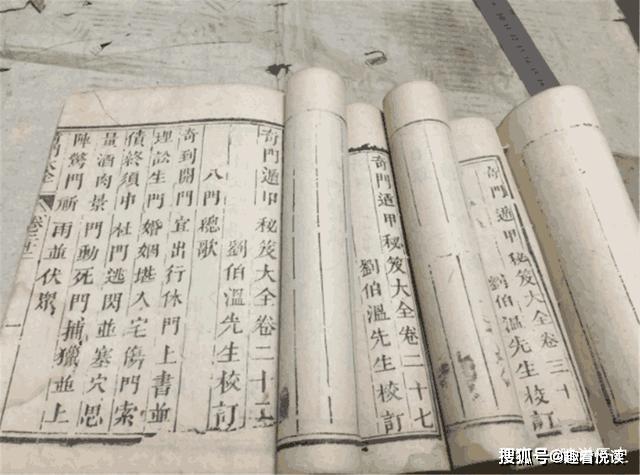 奇門遁甲秘笈大全卷三十
劉伯溫先生校訂
奇門遁甲秘笈大全卷二十七
劉伯溫先生校訂
奇門遁甲秘笈大全卷二十二
劉伯溫先生校訂
八門總歌
奇到開門宜出行休門上書並
理訟生門婚姻堪入宅傷門索
債終須中杜門逃閃並塞穴思
量酒肉景門動死門捕獵並上
陣驚門斫雨並伏眾
門大全
一
搜狐号@趣着悦读